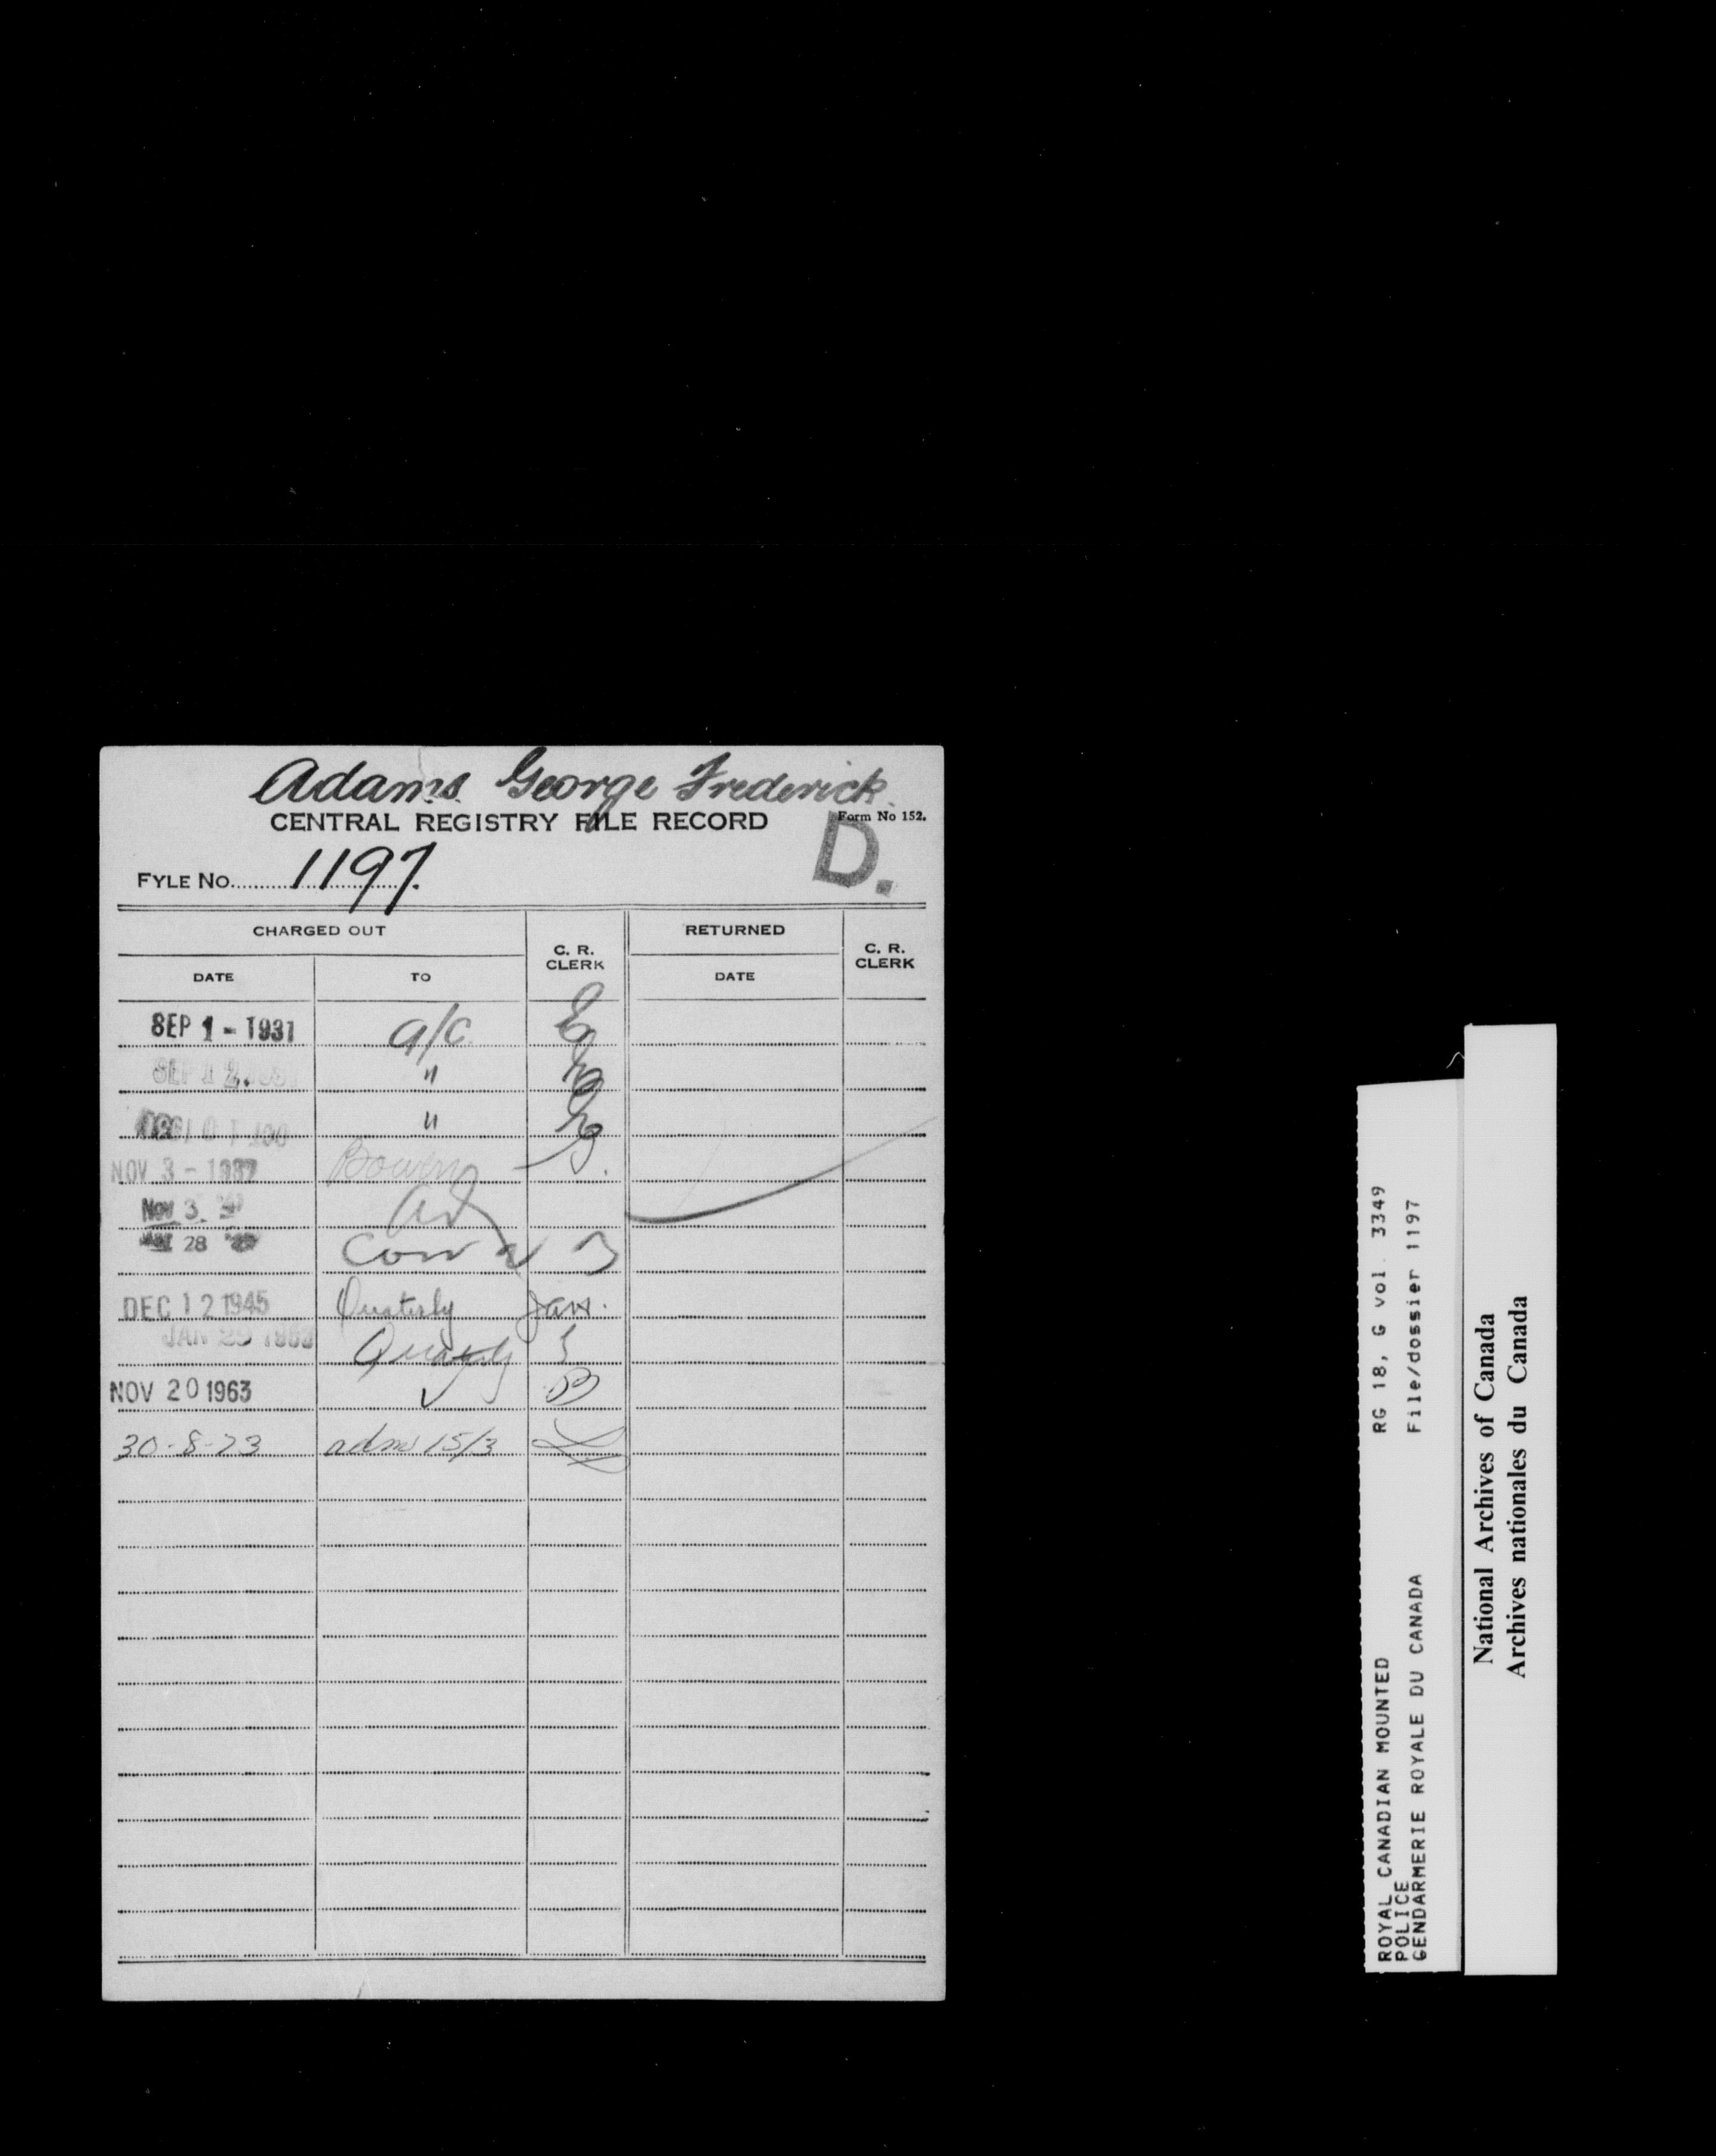 Adams George Frederick.
CENTRAL REGISTRY FILE RECORD
Form No 152.
D.
FYLE NO. 1197.
CHARGED OUT
C. R. CLERK
RETURNED
C. R. CLERK
DATE TO DATE
SEP 1 - 1931 a/c
SEP 12 "
"
NOV 3 - 1937 Bowen
NOV 3.
28
DEC 12 1945 Quaterly Jan.
JAN 29 Quaterly
NOV 20 1963 ✓ B
30-8-73 adms 15/3
ROYAL CANADIAN MOUNTED RG 18, G vol. 3349
POLICE
GENDARMERIE ROYALE DU CANADA File/dossier 1197
National Archives of Canada
Archives nationales du Canada